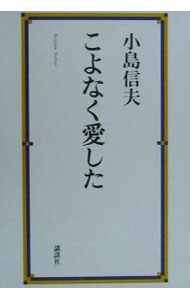 小島信夫
こよなく愛した
講談社